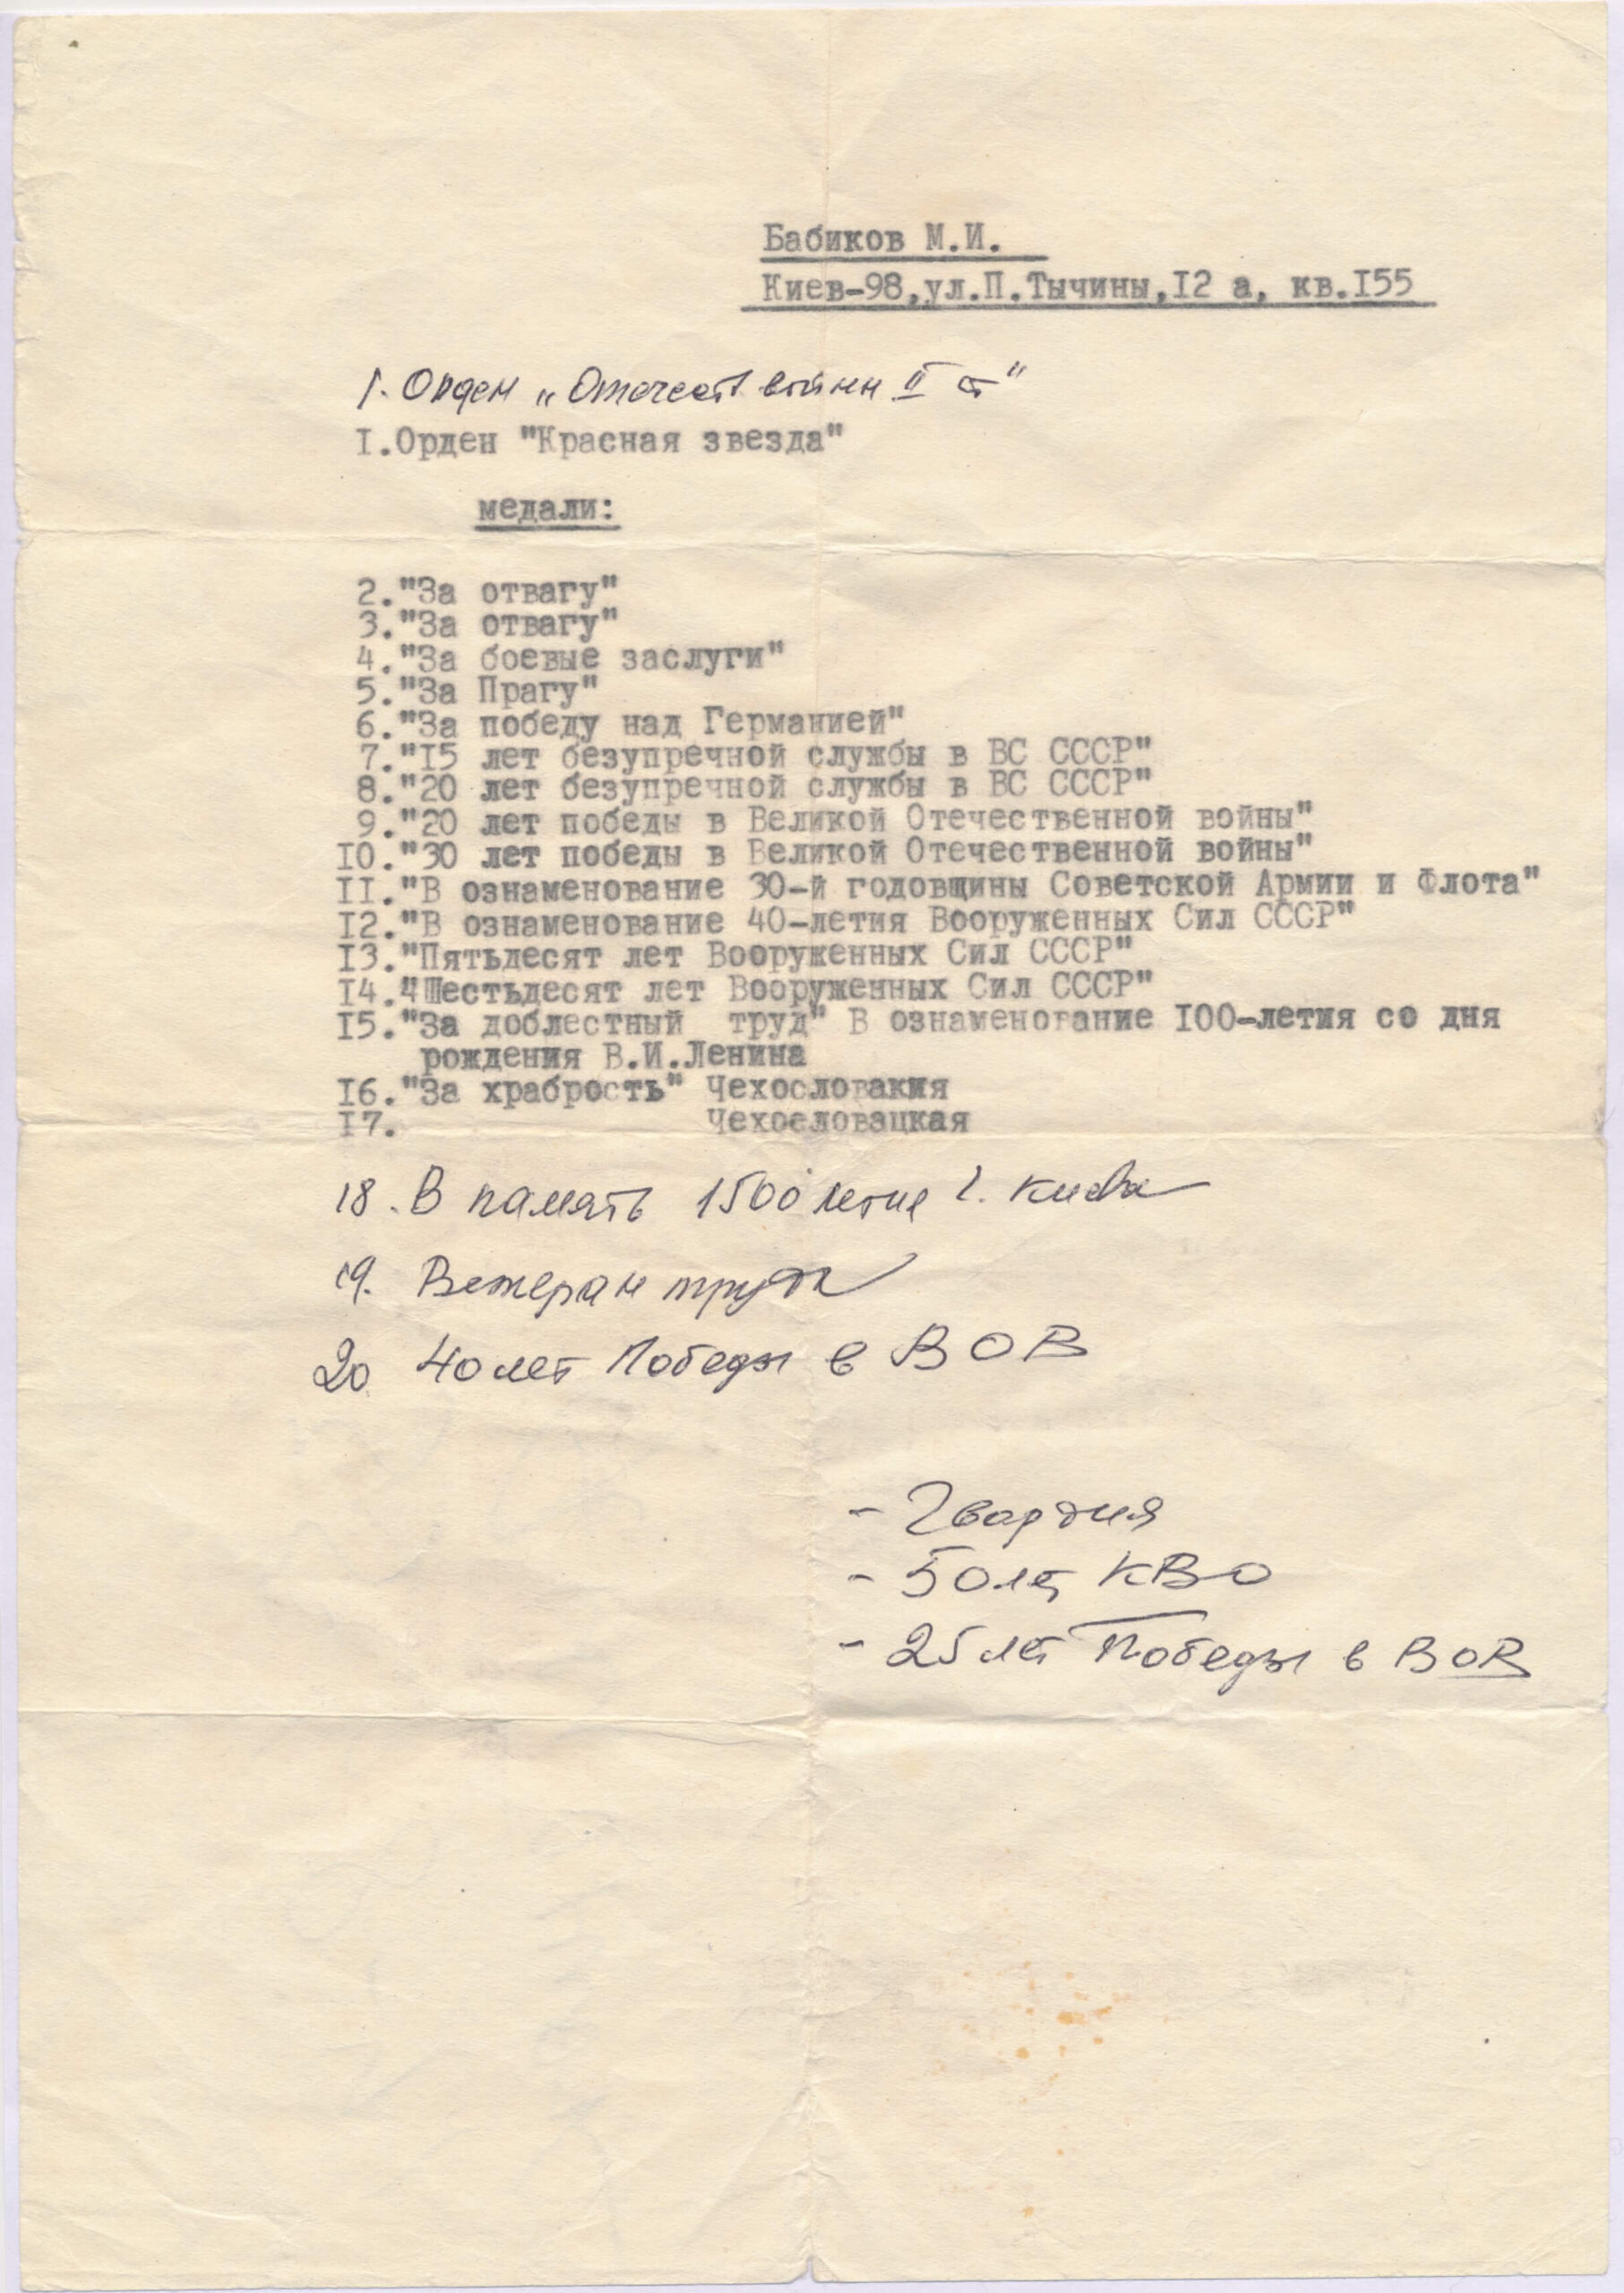 Бабиков М.И.
Киев-98,ул.П.Тычины,I2 а, кв.I55
1. Орден „Отечест войны II ст"
I.Орден "Красная звезда"
медали:
2."За отвагу"
3."За отвагу"
4."За боевые заслуги"
5."За Прагу"
6."За победу над Германией"
7."I5 лет безупречной службы в ВС СССР"
8."20 лет безупречной службы в ВС СССР"
9."20 лет победы в Великой Отечественной войны"
I0."30 лет победы в Великой Отечественной войны"
II."В ознаменование 30-й годовщины Советской Армии и Флота"
I2."В ознаменование 40-летия Вооруженных Сил СССР"
I3."Пятьдесят лет Вооруженных Сил СССР"
I4."Шестьдесят лет Вооруженных Сил СССР"
I5."За доблестный труд" В ознаменование I00-летия со дня
рождения В.И.Ленина
I6."За храбрость" Чехословакия
I7. Чехословацкая
18. В память 1500 летия г. Киева
19. Ветеран труда
20 40 лет Победы в ВОВ
- Гвардия
- 50 лет КВО
- 25 лет Победы в ВОВ